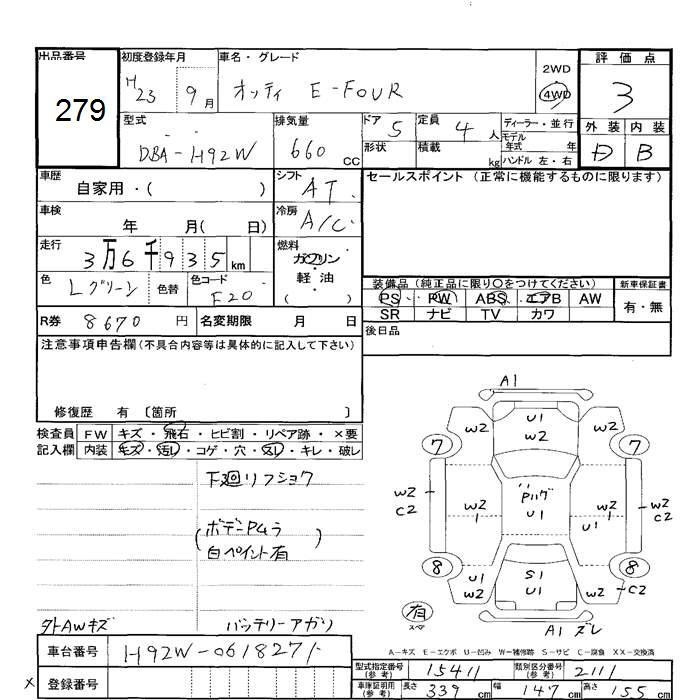 出品番号
279
初度登録年月
H23 9月
車名・グレード
オッティ E-FOUR
2WD
4WD
評価点
3
外装 内装
D B
型式
DBA-H92W
排気量
660 CC
ドア 5
形状
定員 4人
積載 kg
ディーラー・並行
モデル年式 年
ハンドル 左・右
車歴
自家用・( )
シフト
AT
セールスポイント (正常に機能するものに限ります)
車検
年 月( 日)
冷房
A/C
走行
3万6千935km
燃料
ガソリン
軽油
( )
色
Lグリーン
色替
色コード
F20
装備品 (純正品に限り○をつけてください)
PS PW ABS エアB AW
SR ナビ TV カワ
新車保証書
有・無
R券 8670円
名変期限 月 日
後日品
注意事項申告欄(不具合内容等は具体的に記入して下さい)
修復歴 有 〔箇所 〕
検査員記入欄
FW キズ・飛石・ヒビ割・リペア跡・×要
内装 キズ・汚レ・コゲ・穴・スレ・キレ・破レ
下廻リフショク
(ボデーPムラ
白ペイント有)
外AWキズ
バッテリーアガリ
A1
U1
W2
W2
W2
7
7
W2
C2
W2
1
Pハゲ
U1
W2
1
U1
W2
C2
8
8
U1
W2
S1
U1
U1
W2
C2
有
スペア
A1 ズレ
A-キズ E-エクボ U-凹み W-補修跡 S-サビ C-腐食 XX-交換済
車台番号
H92W-0618271
X 登録番号
型式指定番号(参考) 15411
類別区分番号(参考) 2111
車庫証明用(参考) 長さ 339cm 幅 147cm 高さ 155cm